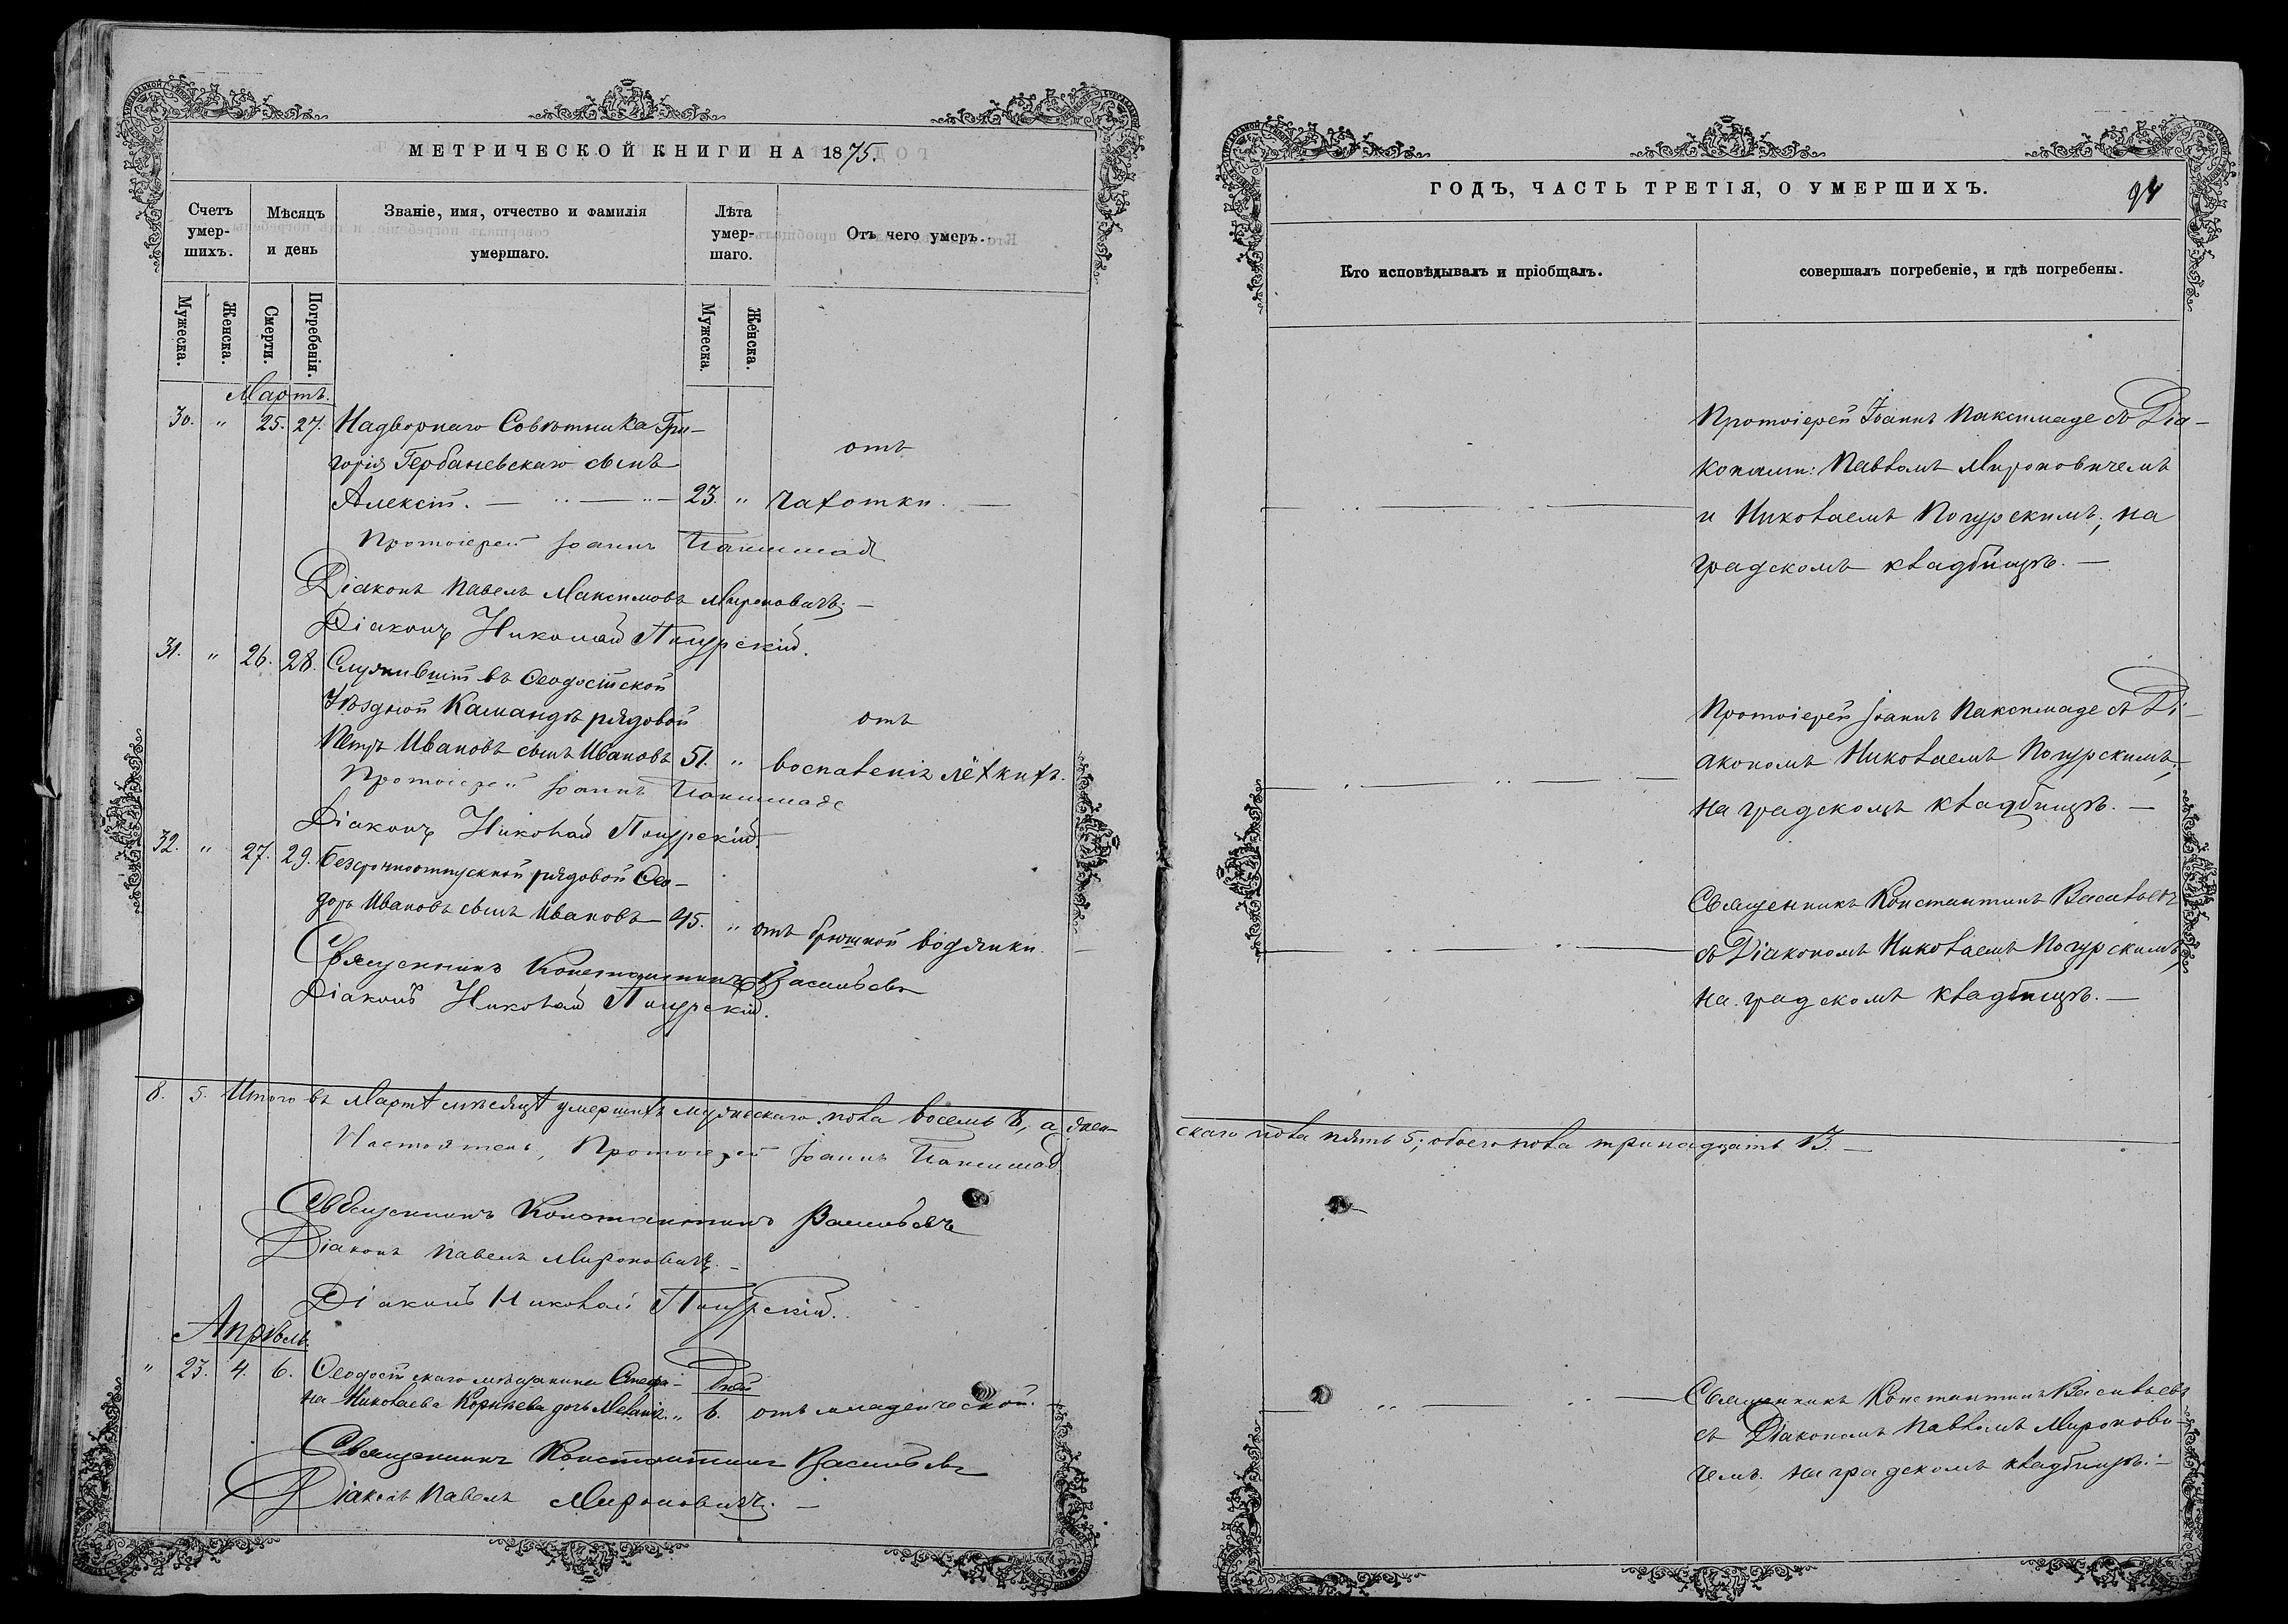 МЕТРИЧЕСКОЙ КНИГИ НА 1875.
Счетъ умер-шихъ.
Мѣсяцъ и день
Званіе, имя, отчество и фамилія умершаго.
Лѣта умер-шаго.
Отъ чего умеръ.
Мужеска.
Женска.
Смерти.
Погребенія.
Мужеска.
Женска.
Мартъ.
30. " 25. 27. Надворнаго Совѣтника Гри-
горія Гербаневскаго сынъ
отъ
Алексѣй. 23. " чахотки.
Протоіерей Іоаннъ
Діаконъ Павелъ Максимовъ Мироновичъ;
Діаконъ Николай
31. " 26. 28. Служившій въ Ѳеодосійской
Уѣздной Командѣ рядовой
отъ
Петръ Ивановъ сынъ Ивановъ 51. " воспаленія лёгкихъ.
Протоіерей Іоаннъ
Діаконъ Николай
32. " 27. 29. Безсрочноотпускной рядовой Ѳео-
доръ Ивановъ сынъ Ивановъ 45. " отъ брюшной водянки.
Священникъ Константинъ Васильевъ
Діаконъ Николай
8. 5. Итого въ Мартѣ мѣсяцѣ умершихъ мужескаго пола восемь 8, а жен-
Настоятель, Протоіерей Іоаннъ
Священникъ Константинъ Васильевъ
Діаконъ Павелъ Мироновичъ.
Діаконъ Николай
Апрѣль.
" 23. 4. 6. Ѳеодосійскаго мѣщанина Стефа-
дней
на Николаева Корнѣева дочь Меланія. " 6. отъ младенческой.
Священникъ Константинъ Васильевъ
Діаконъ Павелъ Мироновичъ.
ГОДЪ, ЧАСТЬ ТРЕТІЯ, О УМЕРШИХЪ.
94
Кто исповѣдывалъ и пріобщалъ.
совершалъ погребеніе, и гдѣ погребены.
Протоіерей Іоаннъ Паксимаде съ Діа-
конами: Павломъ Мироновичемъ
и Николаемъ Погурскимъ, на
градскомъ кладбищѣ.
Протоіерей Іоаннъ Паксимаде съ Ді-
акономъ Николаемъ Погурскимъ,
на градскомъ кладбищѣ.
Священникъ Константинъ Васильевъ
съ Діакономъ Николаемъ Погурскимъ,
на градскомъ кладбищѣ.
скаго пола пять 5; обоего пола тринадцать 13.
Священникъ Константинъ Васильевъ
съ Діакономъ Павломъ Миронови-
чемъ, на градскомъ кладбищѣ.